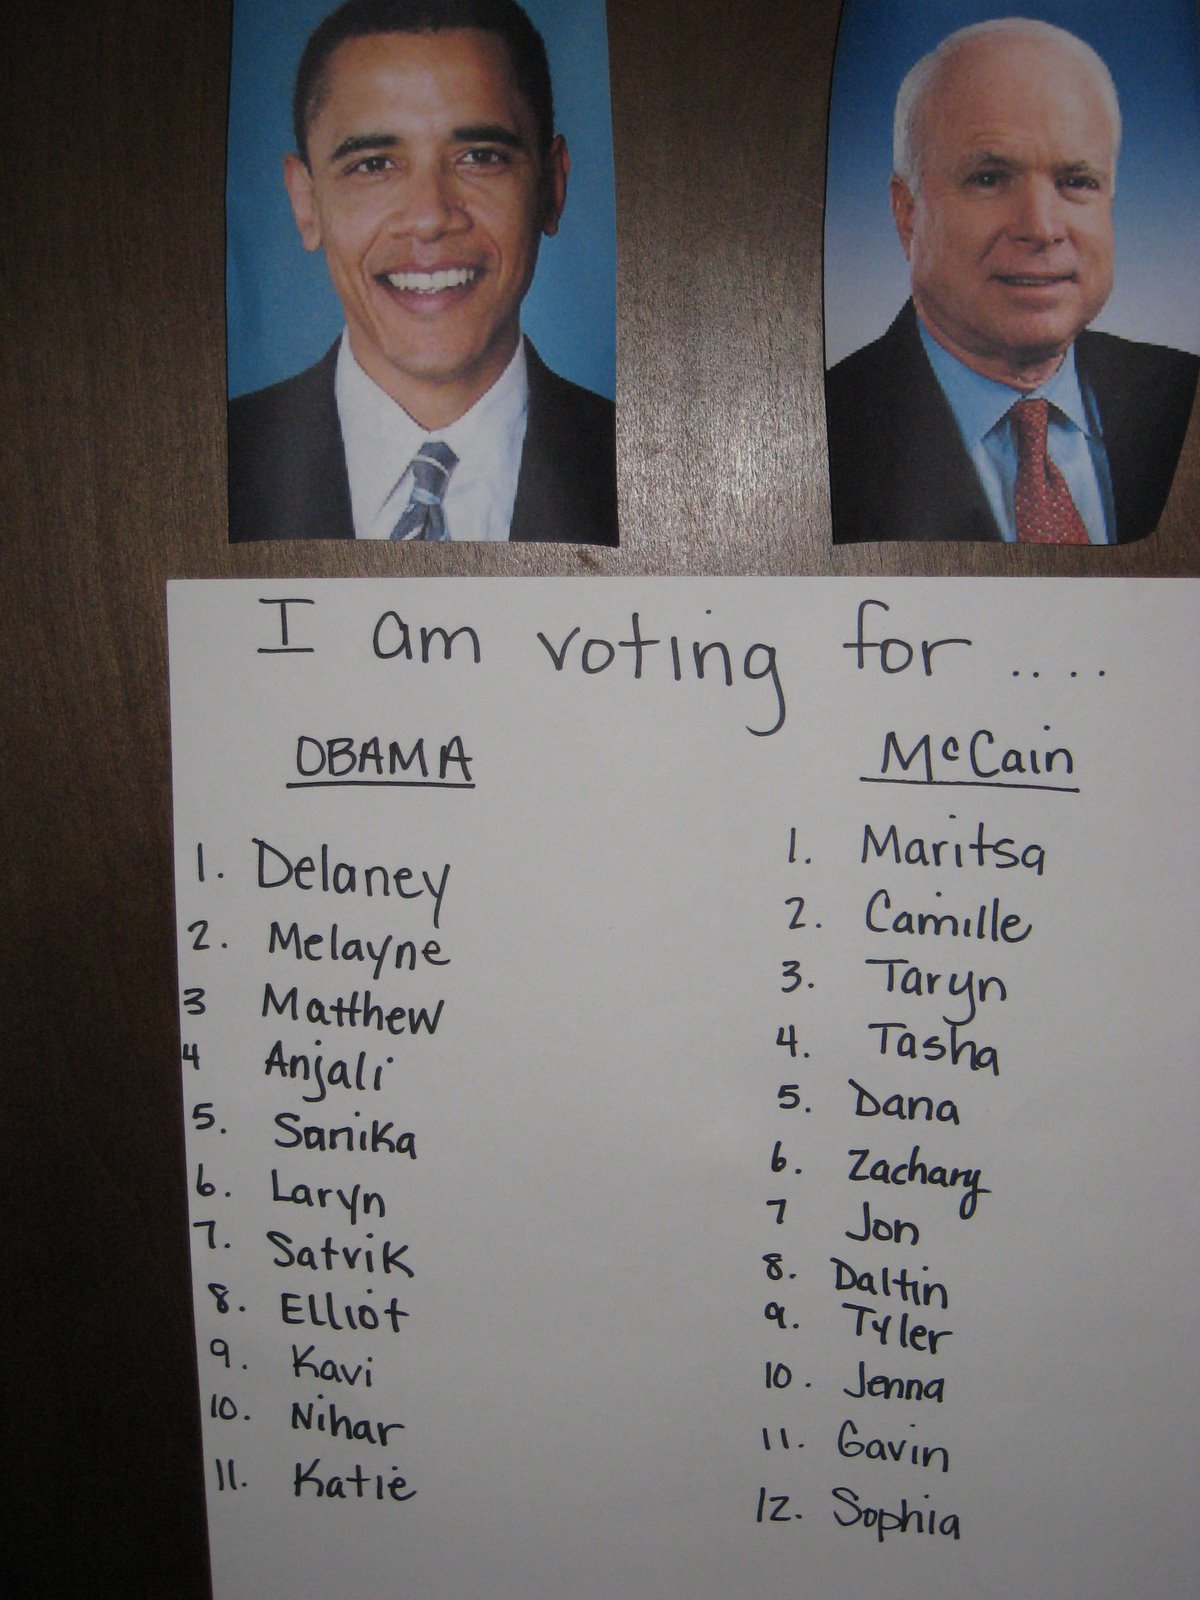 I am voting for ....
OBAMA
1. Delaney
2. Melayne
3 Matthew
4 Anjali
5. Sanika
6. Laryn
7. Satvik
8. Elliot
9. Kavi
10. Nihar
11. Katie
McCain
1. Maritsa
2. Camille
3. Taryn
4. Tasha
5. Dana
6. Zachary
7 Jon
8. Daltin
9. Tyler
10. Jenna
11. Gavin
12. Sophia